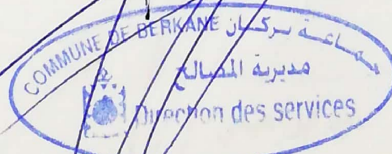 COMMUNE DE BERKANE جماعة بركان
مديرية المصالح
Direction des services